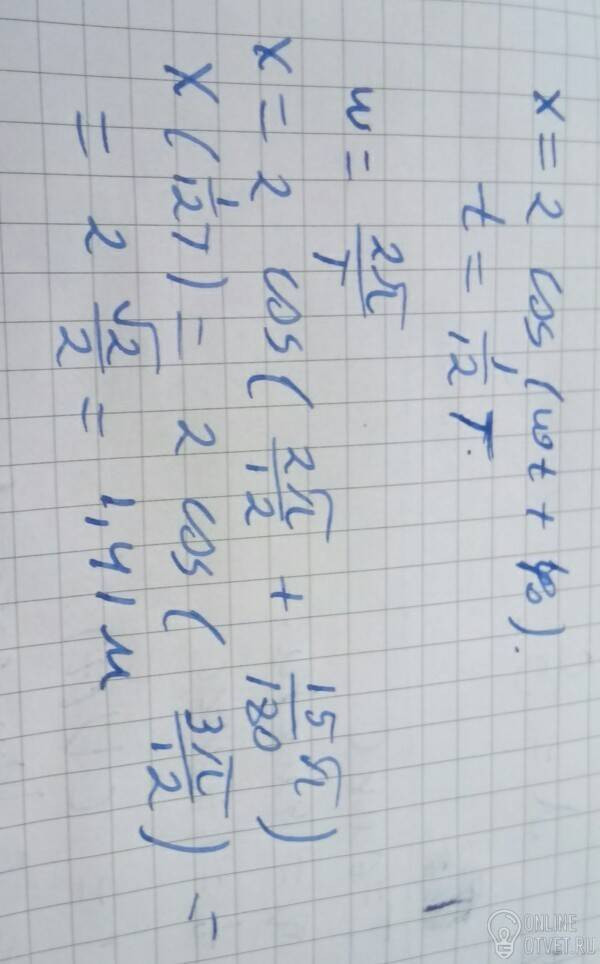 x = 2 cos (ωt + φ0).
t = 1/12 T.
ω = 2π/T
x = 2 cos ( 2π/12 + 15π/180 )
x ( 1/12 T ) = 2 cos ( 3π/12 ) =
= 2 √2/2 = 1,41 м
ONLINE
OTVET.RU